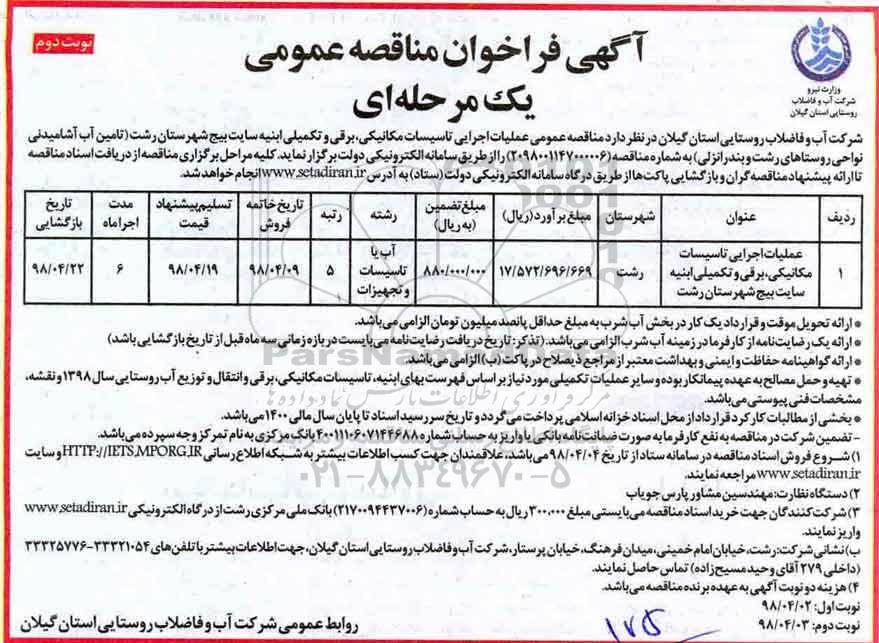 آگهی فراخوان مناقصه عمومی
یک مرحله‌ای
نوبت دوم
وزارت نیرو
شرکت آب و فاضلاب
روستایی استان گیلان
شرکت آب و فاضلاب روستایی استان گیلان در نظر دارد مناقصه عمومی عملیات اجرایی تاسیسات مکانیکی، برقی و تکمیلی ابنیه سایت بیج شهرستان رشت (تامین آب آشامیدنی
نواحی روستاهای رشت و بندرانزلی) به شماره مناقصه (۲۰۹۸۰۰۱۱۴۷۰۰۰۰۰۶) را از طریق سامانه الکترونیکی دولت برگزار نماید. کلیه مراحل برگزاری مناقصه از دریافت اسناد مناقصه
تا ارائه پیشنهاد مناقصه‌گران و بازگشایی پاکت‌ها از طریق درگاه سامانه الکترونیکی دولت (ستاد) به آدرس www.setadiran.ir انجام خواهد شد.
ردیف | عنوان | شهرستان | مبلغ برآورد (ریال) | مبلغ تضمین (به ریال) | رشته | رتبه | تاریخ خاتمه فروش | تسلیم پیشنهاد قیمت | مدت اجرا ماه | تاریخ بازگشایی
۱ | عملیات اجرایی تاسیسات مکانیکی، برقی و تکمیلی ابنیه سایت بیج شهرستان رشت | رشت | ۱۷/۵۷۲/۶۹۶/۶۶۹ | ۸۸۰/۰۰۰/۰۰۰ | آب یا تاسیسات و تجهیزات | ۵ | ۹۸/۰۴/۰۹ | ۹۸/۰۴/۱۹ | ۶ | ۹۸/۰۴/۲۲
* ارائه تحویل موقت و قرارداد یک کار در بخش آب شرب به مبلغ حداقل پانصد میلیون تومان الزامی می‌باشد.
* ارائه یک رضایت‌نامه از کارفرما در زمینه آب شرب الزامی می‌باشد. (تذکر: تاریخ دریافت رضایت‌نامه می‌بایست در بازه زمانی سه ماه قبل از تاریخ بازگشایی باشد)
* ارائه گواهینامه حفاظت و ایمنی و بهداشت معتبر از مراجع ذیصلاح در پاکت (ب) الزامی می‌باشد.
* تهیه و حمل مصالح به عهده پیمانکار بوده و سایر عملیات تکمیلی مورد نیاز بر اساس فهرست بهای ابنیه، تاسیسات مکانیکی، برقی و انتقال و توزیع آب روستایی سال ۱۳۹۸ و نقشه،
مشخصات فنی پیوستی می‌باشد.
* بخشی از مطالبات کارکرد قرارداد از محل اسناد خزانه اسلامی پرداخت می‌گردد و تاریخ سررسید اسناد تا پایان سال مالی ۱۴۰۰ می‌باشد.
- تضمین شرکت در مناقصه به نفع کارفرما به صورت ضمانت‌نامه بانکی یا واریز به حساب شماره ۴۰۰۱۱۱۰۶۰۷۱۴۴۶۸۸ بانک مرکزی به نام تمرکز وجوه سپرده می‌باشد.
۱) شروع فروش اسناد مناقصه در سامانه ستاد از تاریخ ۹۸/۰۴/۰۴ می‌باشد، علاقمندان جهت کسب اطلاعات بیشتر به شبکه اطلاع رسانی HTTP://IETS.MPORG.IR و سایت
www.setadiran.ir مراجعه نمایند.
۲) دستگاه نظارت: مهندسین مشاور پارس جویاب
۳) شرکت کنندگان جهت خرید اسناد مناقصه می‌بایستی مبلغ ۳۰۰،۰۰۰ ریال به حساب شماره (۲۱۷۰۰۹۴۴۳۷۰۰۶) بانک ملی مرکزی رشت از درگاه الکترونیکی www.setadiran.ir
واریز نمایند.
ب) نشانی شرکت: رشت، خیابان امام خمینی، میدان فرهنگ، خیابان پرستار، شرکت آب و فاضلاب روستایی استان گیلان، جهت اطلاعات بیشتر با تلفن‌های ۳۳۳۲۱۰۵۴-۳۳۳۲۵۷۷۶
(داخلی ۲۷۹ آقای وحید مسیح زاده) تماس حاصل نمایند.
۴) هزینه دو نوبت آگهی به عهده برنده مناقصه می‌باشد.
نوبت اول: ۹۸/۰۴/۰۲
نوبت دوم: ۹۸/۰۴/۰۳
روابط عمومی شرکت آب و فاضلاب روستایی استان گیلان
۰۲۱-۸۸۳۴۹۶۷۰-۵